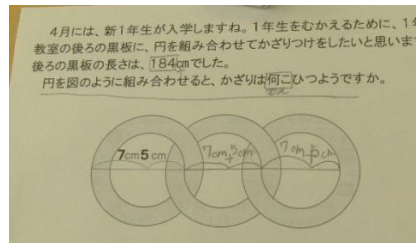 4月には、新1年生が入学しますね。1年生をむかえるために、1年
教室の後ろの黒板に、円を組み合わせてかざりつけをしたいと思いま
後ろの黒板の長さは、184cmでした。
円を図のように組み合わせると、かざりは何こひつようですか。
7cm5cm 7cm+5cm 7cm 5cm